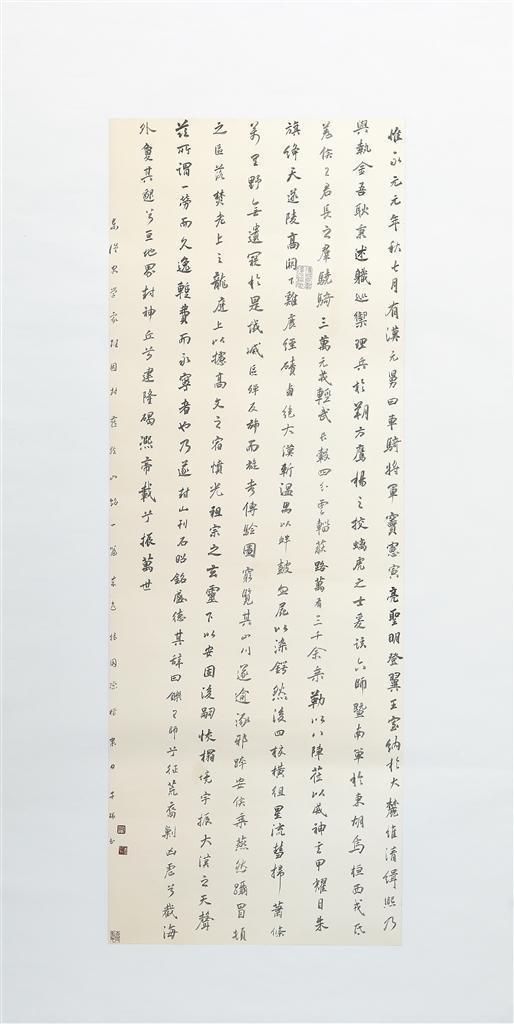 惟永元元年秋七月有漢元舅曰車騎將軍竇憲寅亮聖明登翼王室納於大麓維清緝熙乃
與執金吾耿秉述職巡禦理兵於朔方鷹揚之校螭虎之士爰該六師暨南單於東胡烏桓西戎氐
羌侯王君長之群驍騎三萬元戎輕武長轂四分雲輜蔽路萬有三千余乘勒以八陣莅以威神玄甲耀日朱
旗絳天遂陵高闕下雞鹿經磧鹵絕大漠斬溫禺以釁鼓血尸以染鍔然後四校橫徂星流彗掃蕭條
萬里野無遺寇於是域滅區殫反旆而旋考傳驗圖窮覽其山川遂逾涿邪跨安侯乘燕然躡冒頓
之區落焚老上之龍庭上以攄高文之宿憤光祖宗之玄靈下以安固後嗣恢拓境宇振大漢之天聲
茲所謂一勞而久逸暫費而永寧者也乃遂封山刊石昭銘盛德其辭曰鑠王師兮征荒裔剿凶虐兮截海
外夐其邈兮亙地界封神丘兮建隆碣熙帝載兮振萬世
東漢史學家班固封燕然山銘一篇